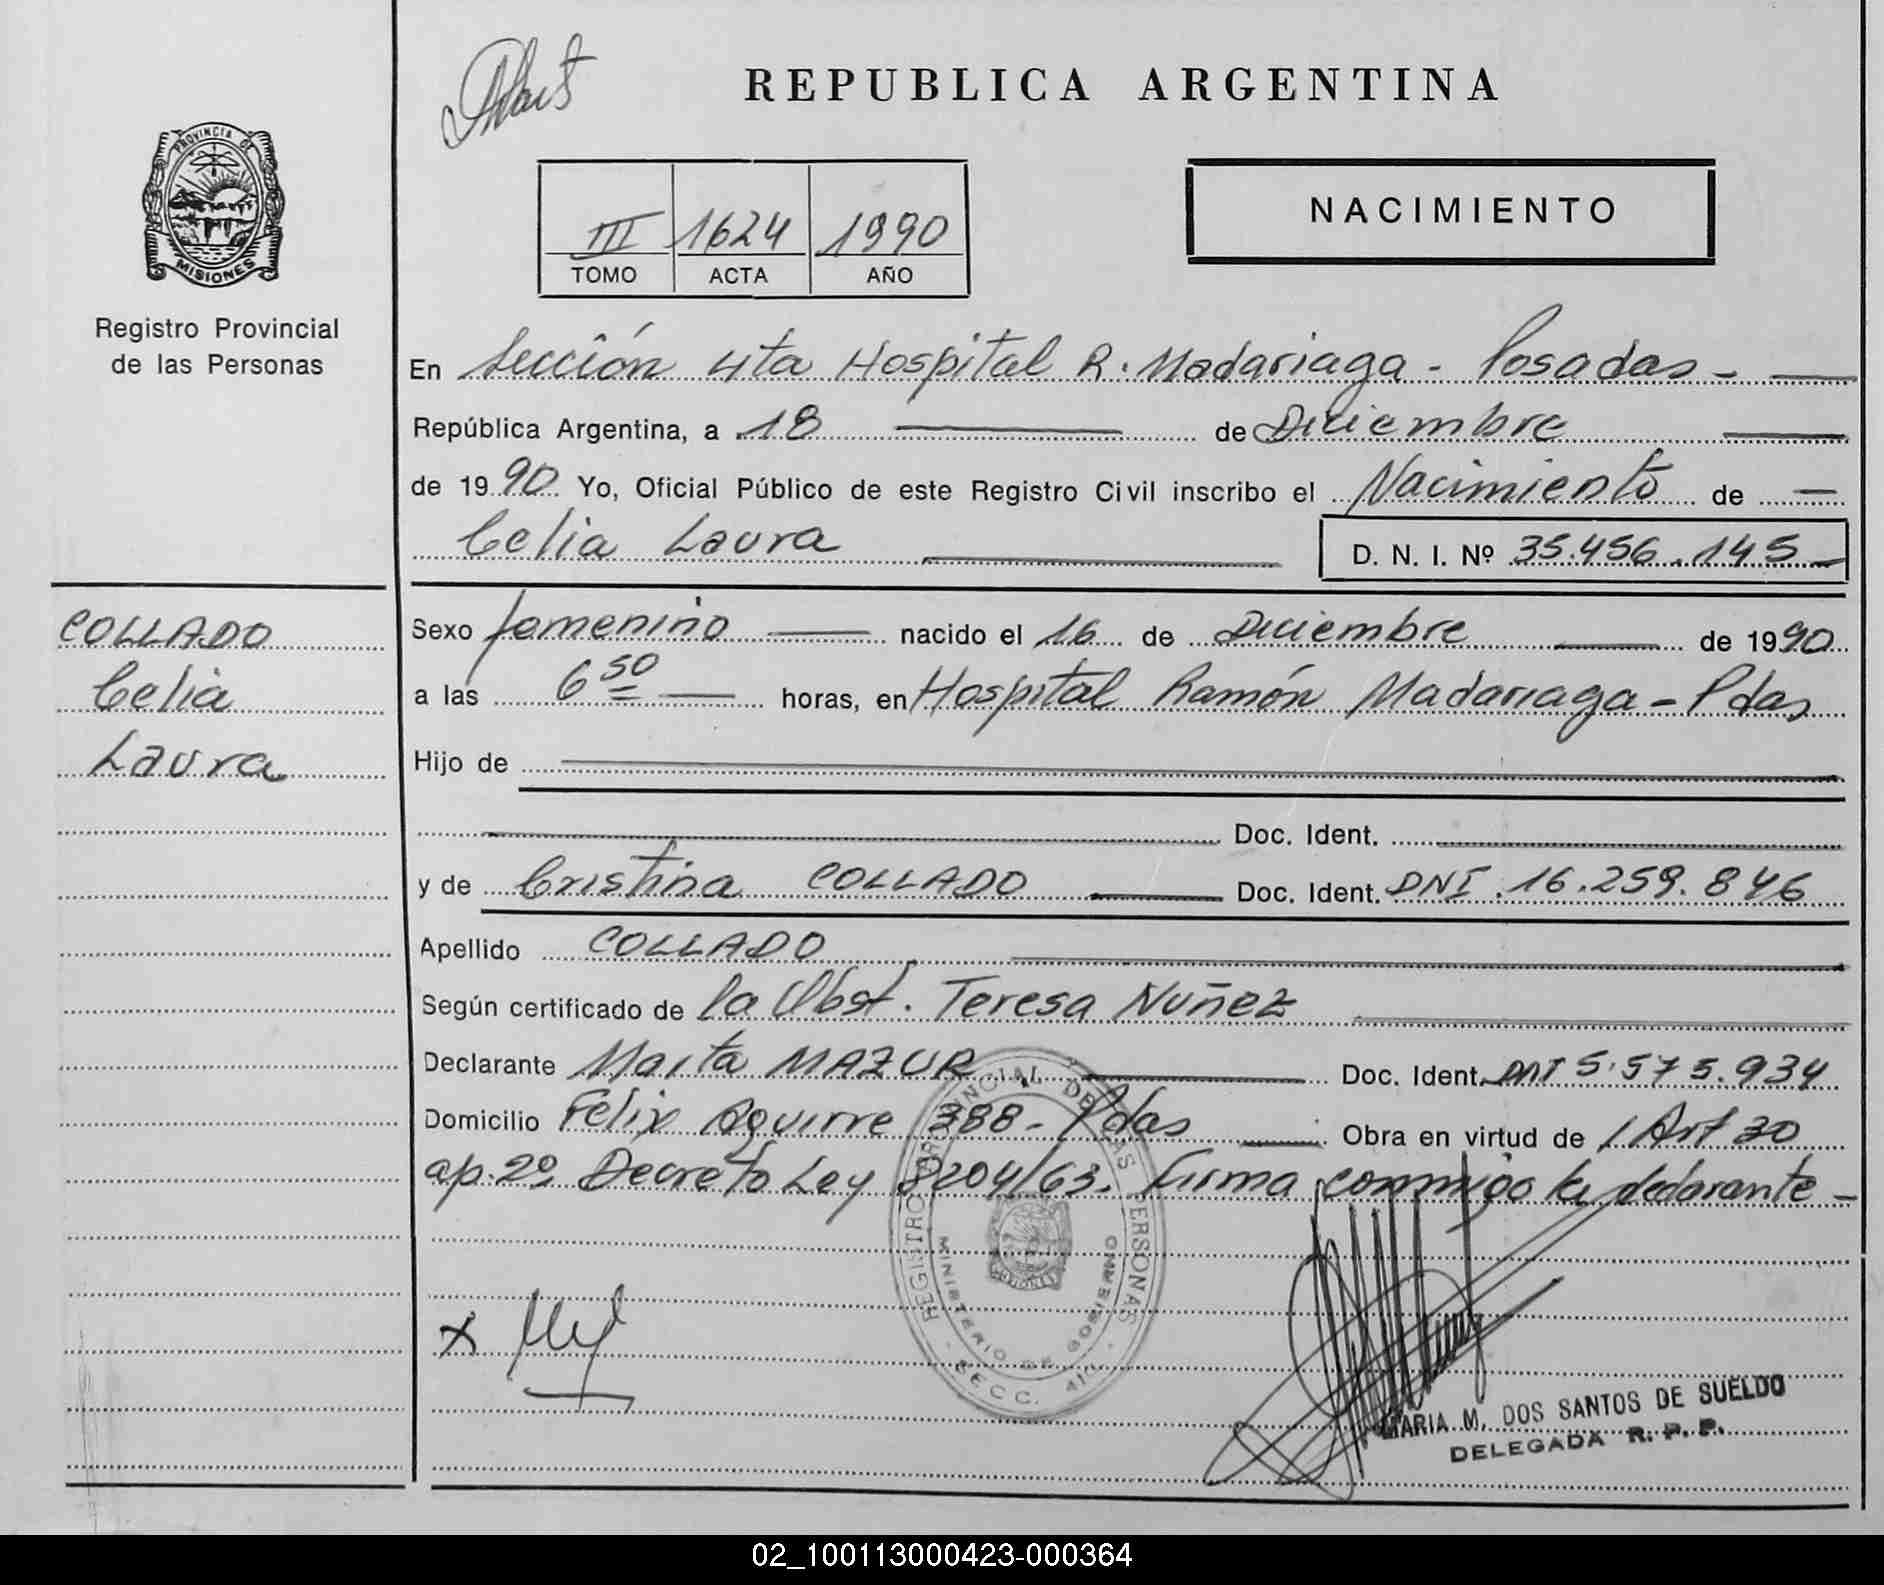 REPUBLICA ARGENTINA
PROVINCIA DE
MISIONES
Registro Provincial
de las Personas
III 1624 1990
TOMO ACTA AÑO
NACIMIENTO
En Sección 4ta Hospital R. Madariaga - Posadas -
República Argentina, a 18 de Diciembre
de 1990 Yo, Oficial Público de este Registro Civil inscribo el Nacimiento de
Celia Laura D. N. I. Nº 35.456.145
COLLADO
Celia
Laura
Sexo femenino nacido el 16 de Diciembre de 1990
a las 6 50 horas, en Hospital Ramón Madariaga - Pdas
Hijo de
Doc. Ident.
y de Cristina COLLADO Doc. Ident. DNI. 16.259.846
Apellido COLLADO
Según certificado de la Obst. Teresa Nuñez
Declarante Marta MAZUR Doc. Ident. DNI 5.575.934
Domicilio Felix Aguirre 388 - Pdas Obra en virtud de / Art 30
ap. 2º Decreto Ley 8204/63. Firma conmigo la declarante -
REGISTRO PROVINCIAL DE LAS PERSONAS
MINISTERIO DE GOBIERNO
SECC. 4ta.
MISIONES
X
MARIA M. DOS SANTOS DE SUELDO
DELEGADA R. P. P.
02_100113000423-000364